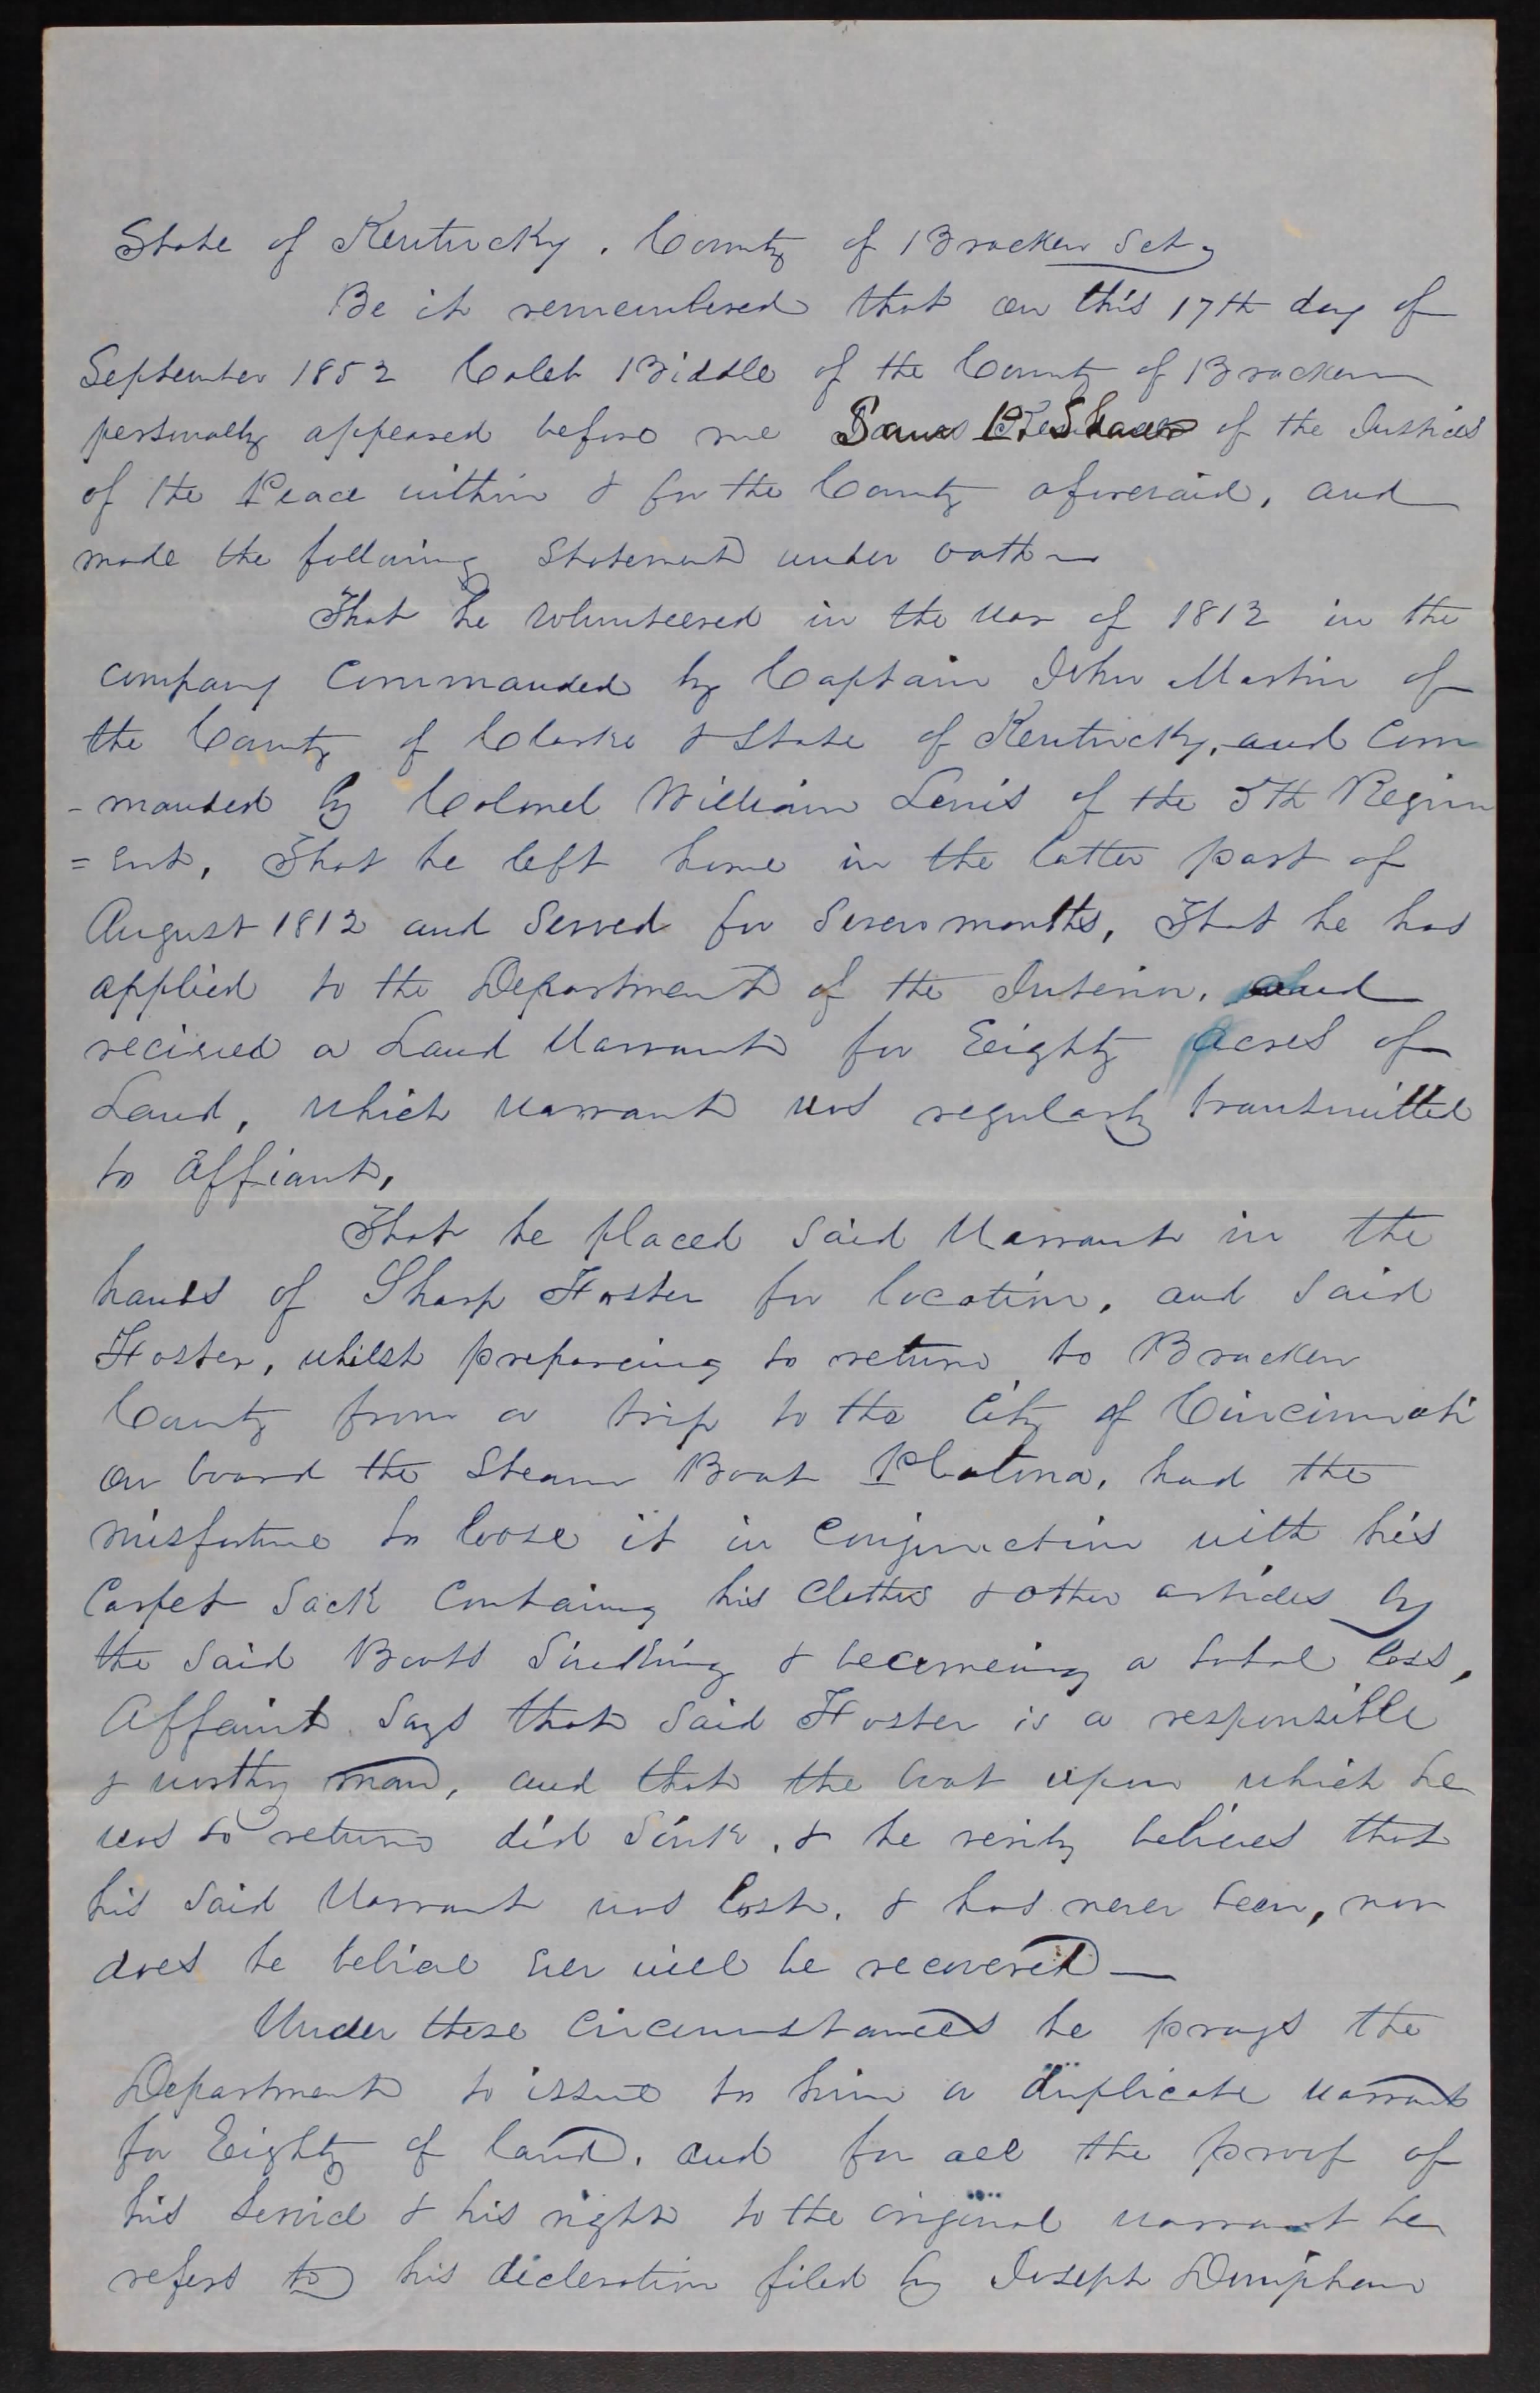 State of Kentucky. County of Bracken Sct.
Be it remembered that on this 17th day of
September 1852 Caleb Biddle of the County of Bracken
personally appeared before me of the Justices
of the Peace within & for the County aforesaid, and
made the following Statement under oath
That he volunteered in the war of 1812 in the
company Commanded by Captain John Martin of
the County of Clarke & State of Kentucky, and Com
-manded by Colonel William Lewis of the 5th Regim
=ent, That he left home in the latter part of
August 1812 and Served for Seven months, That he has
applied to the Department of the Interior, and
recieved a Land Warrant for Eighty acres of
Land, which warrant was regularly transmitted
to affiant,
That he placed Said Warrant in the
hands of Sharp Foster for location, and Said
Foster, whilst prepareing to return to Bracken
County from a trip to the City of Cincinnati
on board the Steam Boat Platona, had the
misfortune to loose it in Conjunction with his
Carpet Sack Containing his Clothes & other articles by
the Said Boats Sinking & becomeing a total loss,
Affaint Says that Said Foster is a responsible
& worthy man, and that the boat upon which he
was to return did Sink, & he verily believes that
his Said Warrant was lost, & has never been, nor
does he believe ever will be recovered
Under these Circumstances he prays the
Department to issue to him a duplicate warrant
for Eighty of land, and for all the proof of
his Service & his right to the original warrant he
refers to his decleration filed by Joseph Doniphan